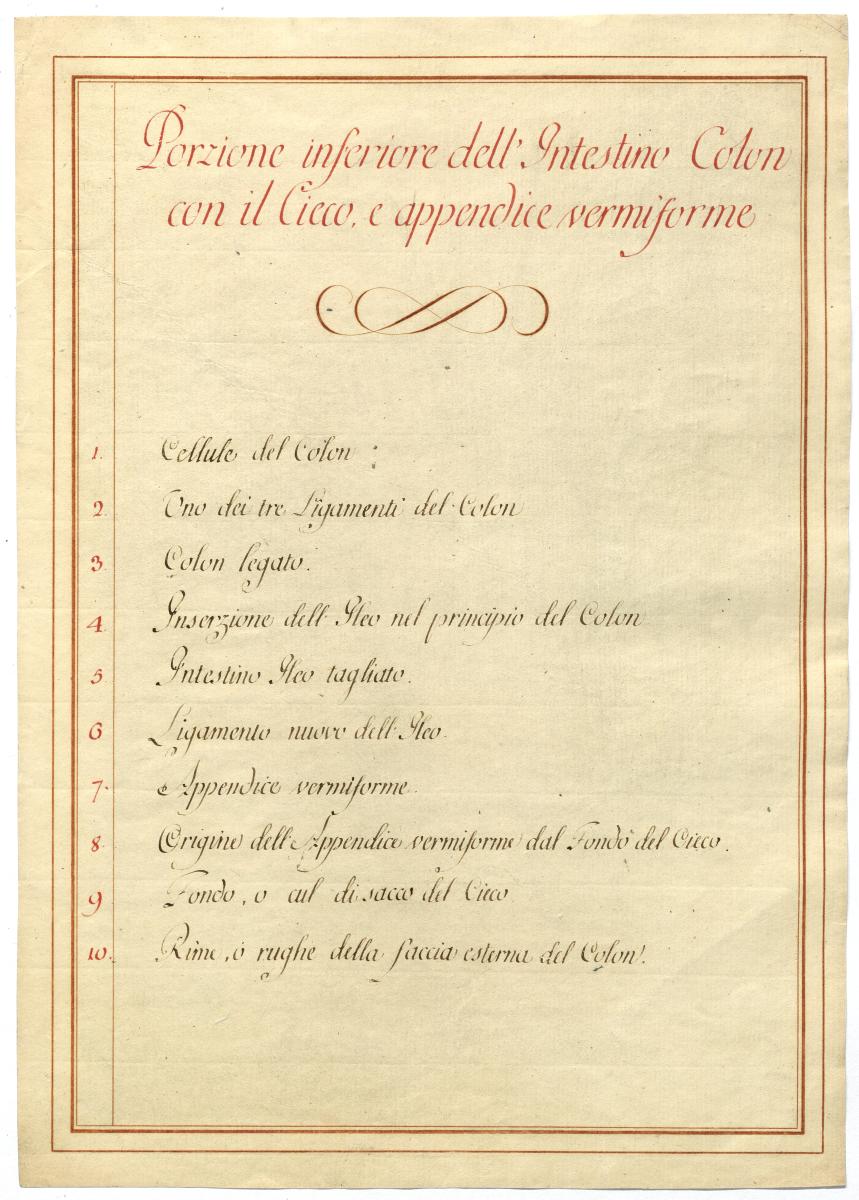 Porzione inferiore dell'Intestino Colon
con il Cieco, e appendice vermiforme
1. Cellule del Colon
2. Uno dei tre Ligamenti del Colon
3. Colon legato.
4. Inserzione dell'Ileo nel principio del Colon
5. Intestino Ileo tagliato.
6 Ligamento nuovo dell'Ileo.
7. Appendice vermiforme.
8. Origine dell'Appendice vermiforme dal Fondo del Cieco.
9 Fondo, o cul di sacco del Cieco
10. Rime, o rughe della faccia esterna del Colon.